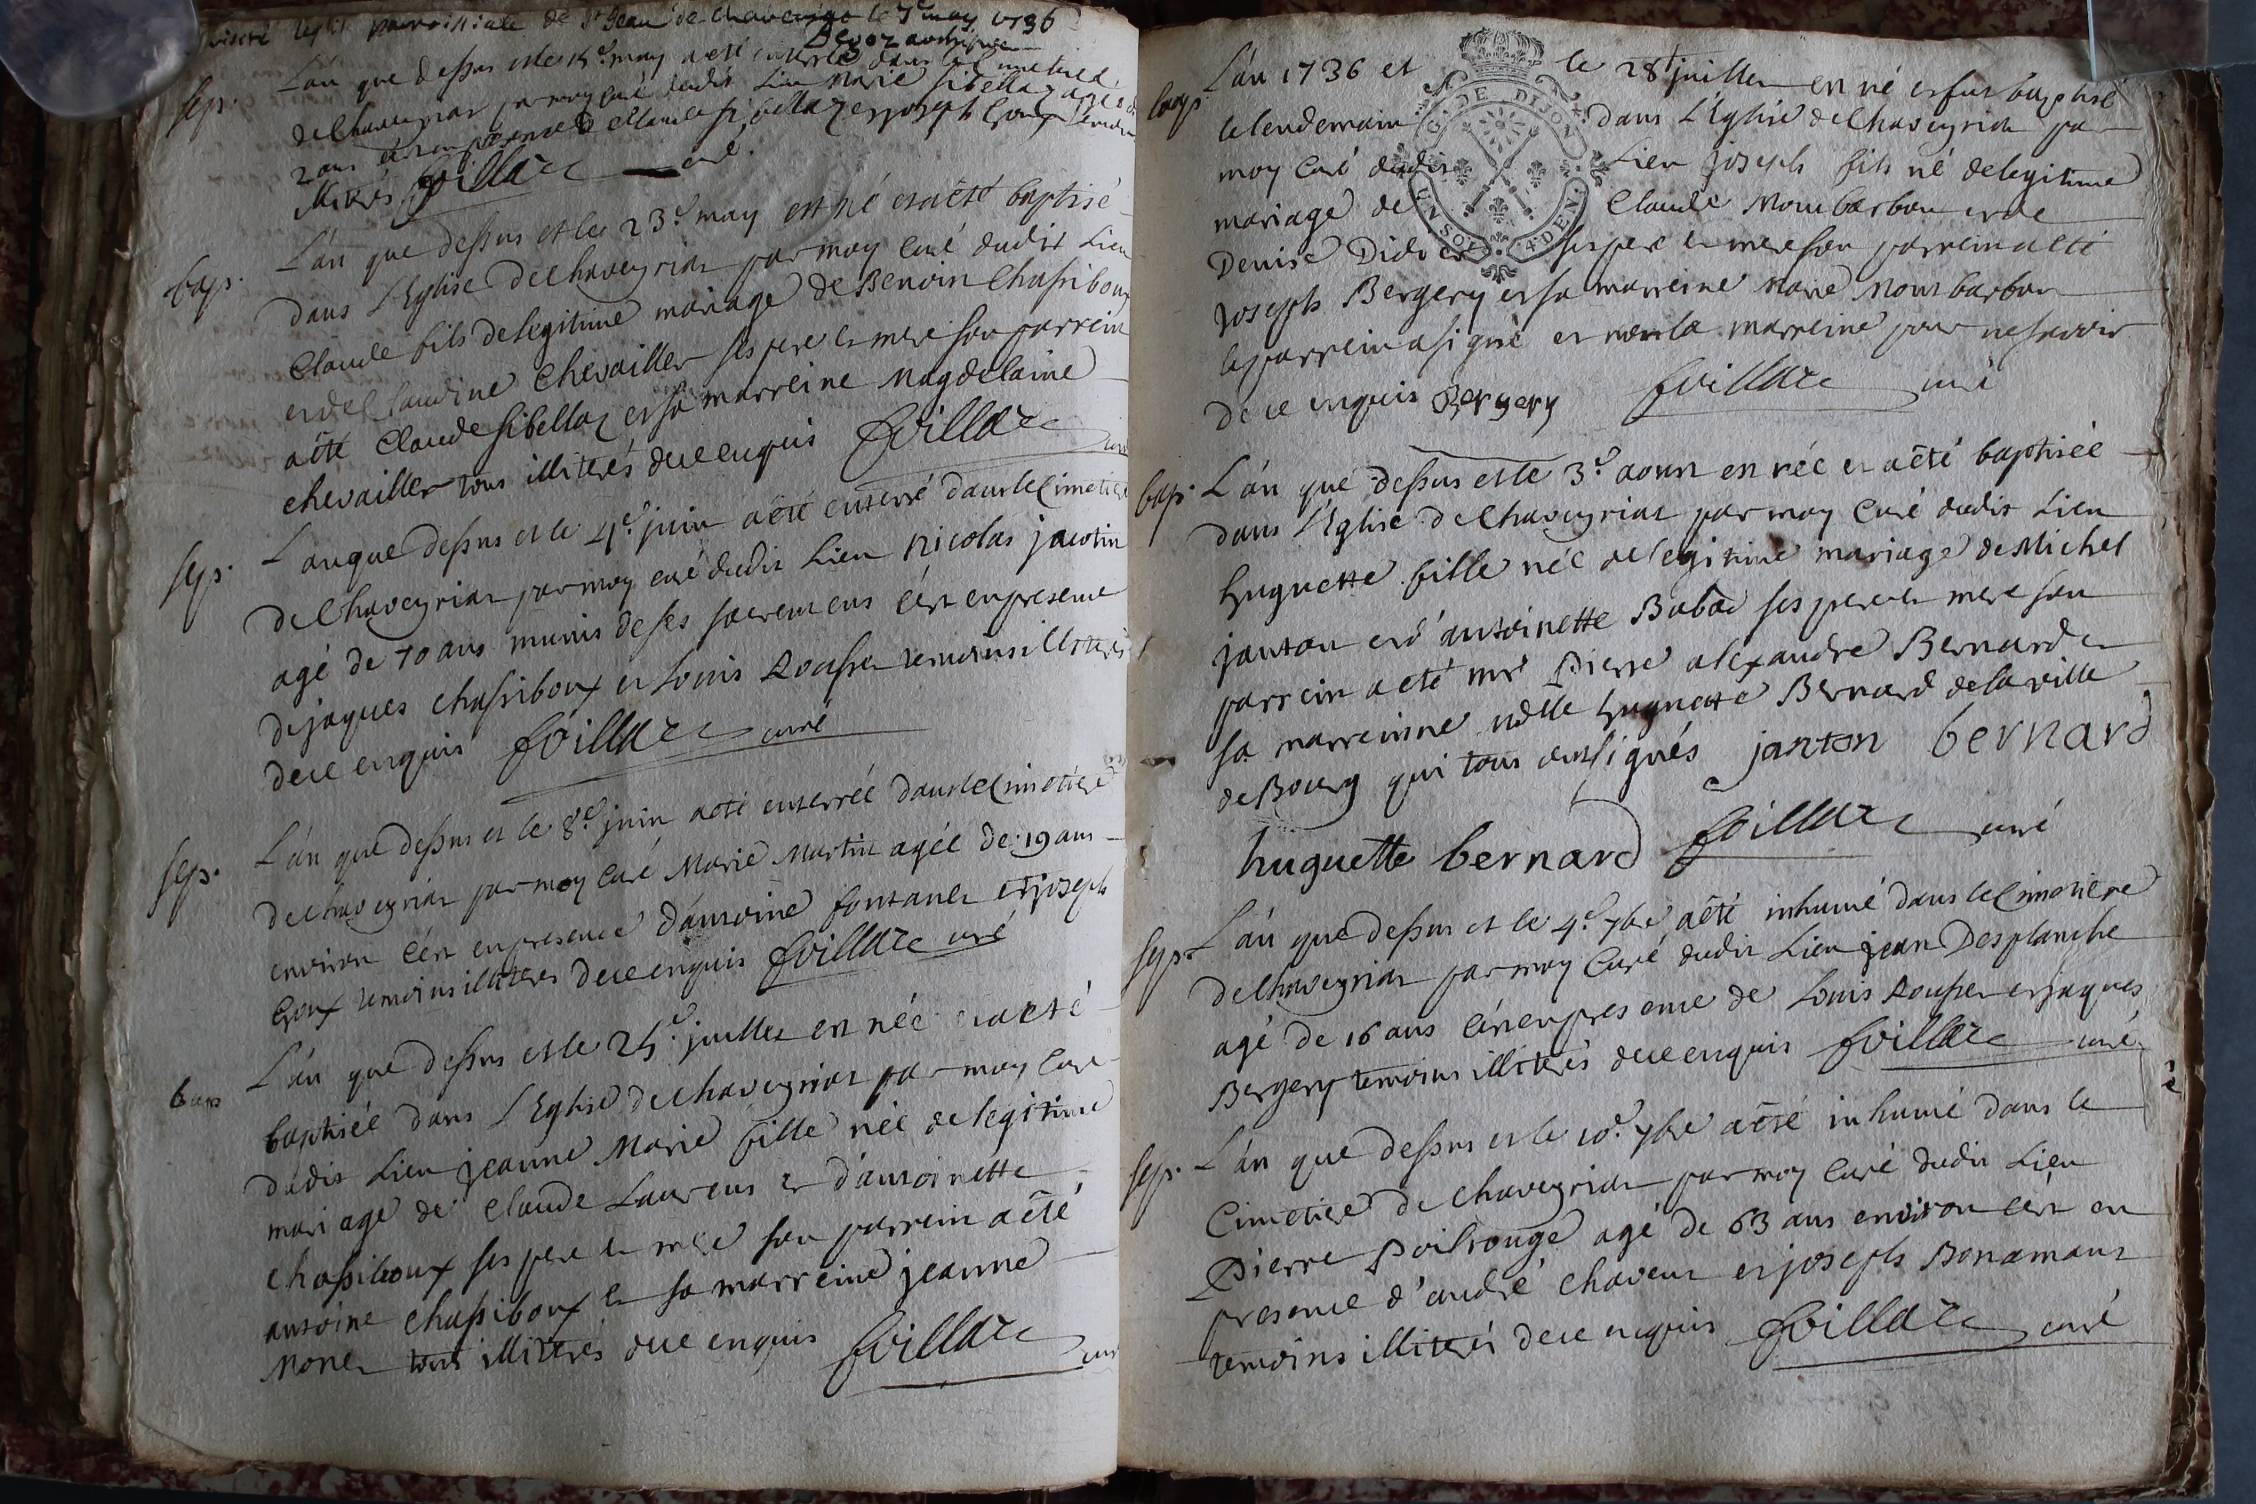 visité l'église parroissiale de St Jean de chaveyriat le 7e may 1736
sep.
L'an que dessus et le 15e may a eté enterré dans le Cimetiere
de Chaveyriat par moy curé dudit Lieu Marie Sibellaz agée de
2 ans c'est en presence de Claude Sibellaz et joseph Goux temoins
illiterés foillaz curé.
bap.
L'an que dessus et le 23e may est né et a eté baptisé
dans l'Eglise de Chaveyriat par moy Curé dudit Lieu
Claude fils de legitime mariage de Benoin Chassiboux
et de Claudine Chevailler ses pere et mere son parrein
a eté Claude Sibellaz et sa marreine Magdelaine
chevailler tous illiterés de ce enquis foillaz curé
sep.
L'an que dessus et le 4e juin a eté enterré dans le Cimetiere
de Chaveyriat par moy curé dudit Lieu Nicolas jacotin
agé de 70 ans munis de ses sacremens c'est en presence
de jaques chassiboux et Louis Rousset temoins illiterés
de ce enquis foillaz curé
sep.
L'an que dessus et le 8e juin a eté enterrée dans le Cimetiere
de chaveyriat par moy Curé Marie Martin agée de 19 ans
environ c'est en presence d'antoine fontanet et joseph
Goux temoins illiterés de ce enquis foillaz curé
bap
L'an que dessus et le 25e juillet est née et a eté
baptisée dans l'Eglise de chaveyriat par moy Curé
dudit Lieu jeanne Marie fille née de legitime
mariage de Claude Laurens et d'antoinette
chassiboux ses pere et mere son parrein a eté
antoine chassiboux et sa marreine jeanne
Monet tous illiterés de ce enquis foillaz curé
bap.
L'an 1736 et le 28e juillet est né et fut baptisé
le lendemain dans l'Eglise de Chaveyriat par
moy Curé dudit Lieu joseph fils né de legitime
mariage de Claude Moubarbon et de
Denise Didier ses pere et mere son parrein a eté
joseph Bergery et sa marreine Marie Mourbarbon
le parrein a signé et non la marreine pour ne savoir
de ce enquis Bergery foillaz curé
G. DE DIJON
UN SOL 4 DEN.
bap.
L'an que dessus et le 3e aoust est née et a eté baptisée
dans l'Eglise de Chaveyriat par moy Curé dudit Lieu
huguette fille née de legitime mariage de Michel
janton et d'antoinette Babad ses pere et mere son
parrein a eté mr Pierre alexandre Bernard et
sa marreinne Mdlle huguette Bernard de la ville
de Bourg qui tous ont signés janton bernard
huguette bernard foillaz curé
sep.
L'an que dessus et le 4e 7bre a eté inhumé dans le Cimetiere
de Chaveyriat par moy Curé dudit Lieu jean Desplanche
agé de 16 ans c'est en presence de Louis Rousset et jaques
Bergery temoins illiterés de ce enquis foillaz curé
sep.
L'an que dessus et le 10e 7bre a eté inhumé dans le
Cimetiere de chaveyriat par moy Curé dudit Lieu
Pierre Poilrouge agé de 63 ans environ c'est en
presence d'andré chaveut et joseph Bonamant
temoins illiterés de ce enquis foillaz curé